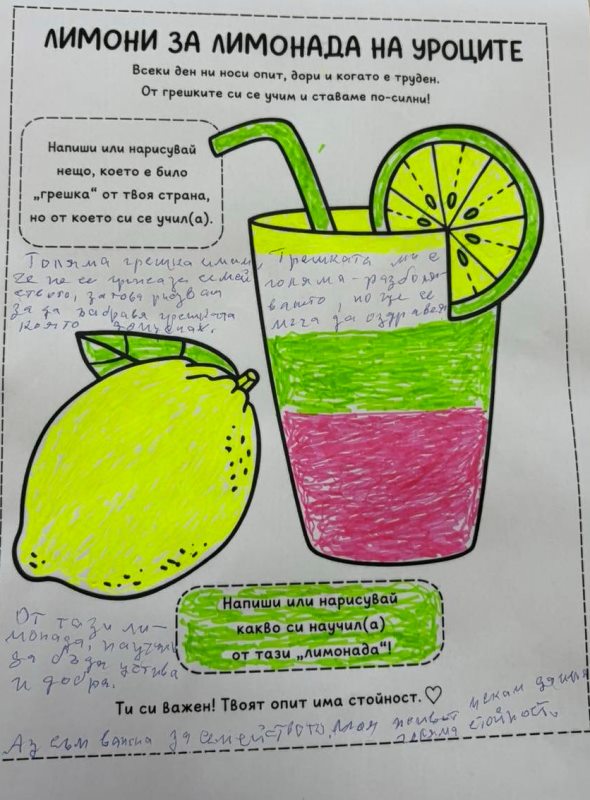 ЛИМОНИ ЗА ЛИМОНАДА НА УРОЦИТЕ
Всеки ден ни носи опит, дори и когато е труден.
От грешките си се учим и ставаме по-силни!
Напиши или нарисувай
нещо, което е било
„грешка“ от твоя страна,
но от което си се учил(а).
Голяма грешка имам,
че не се семей
ството, затова рисувам
за да забравя грешката
която допуснах.
Грешката ми е
голяма-разболя
ването, но ще се
да оздравея
От тази ли-
монада, научих
да бъда
и добра.
Напиши или нарисувай
какво си научил(а)
от тази „лимонада“!
Ти си важен! Твоят опит има стойност.♡
Аз съм важна за семейството. Моя живот искам да има
голяма стойност.